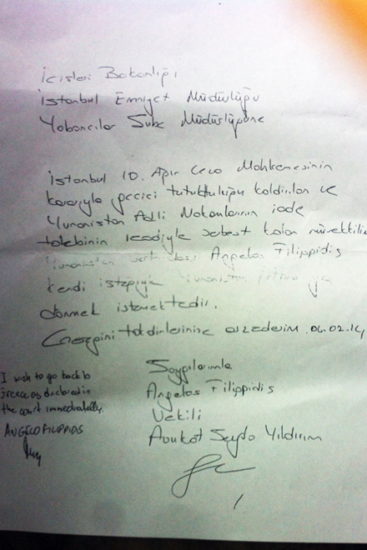 İçişleri Bakanlığı
İstanbul Emniyet Müdürlüğü
Yabancılar Şube Müdürlüğüne
İstanbul 10. Ağır Ceza Mahkemesinin
kararıyla geçici tutukluluğu kaldırılan ve
Yunanistan Adli Makamlarının iade
talebinin reddiyle serbest kalan müvekkilim
Yunanistan Angelos Filippidis
kendi isteğiyle Yunanistan
dönmek istemektedir.
Gereğini takdirlerinize arzederim. 04.02.14
Saygılarımla
Angelos Filippidis
Vekili
Avukat Seyda Yıldırım
I wish to go back to
greece as declared in
the court immediatelly.
ANGELO FILIPPIDIS